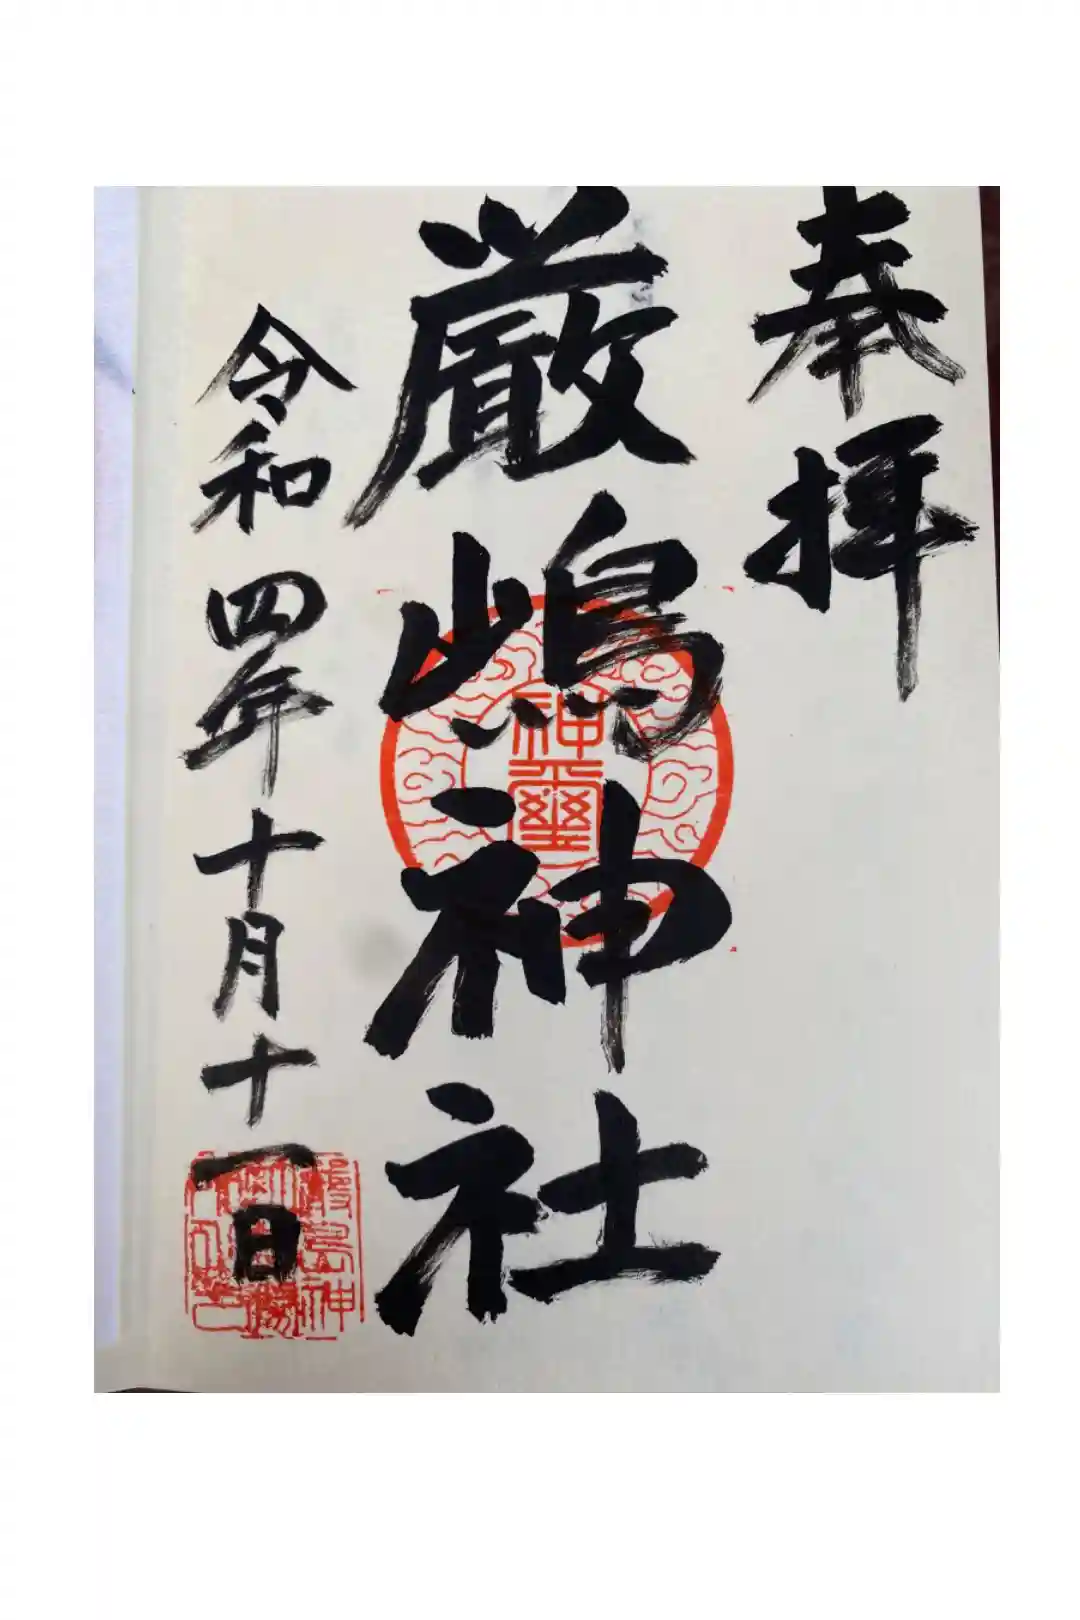 奉拝
厳嶋神社
神璽
令和四年十月十一日